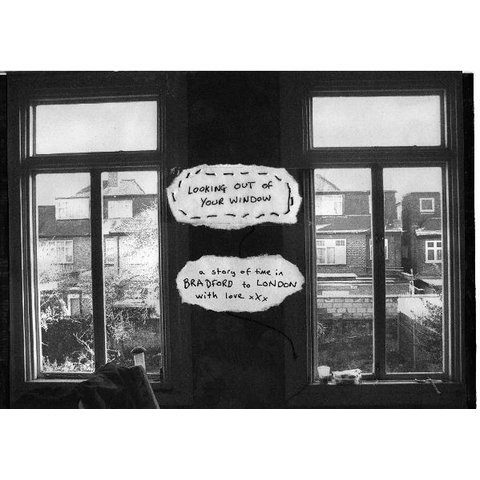 LOOKING OUT OF
YOUR WINDOW
a story of time in
BRADFORD to LONDON
with love xXx